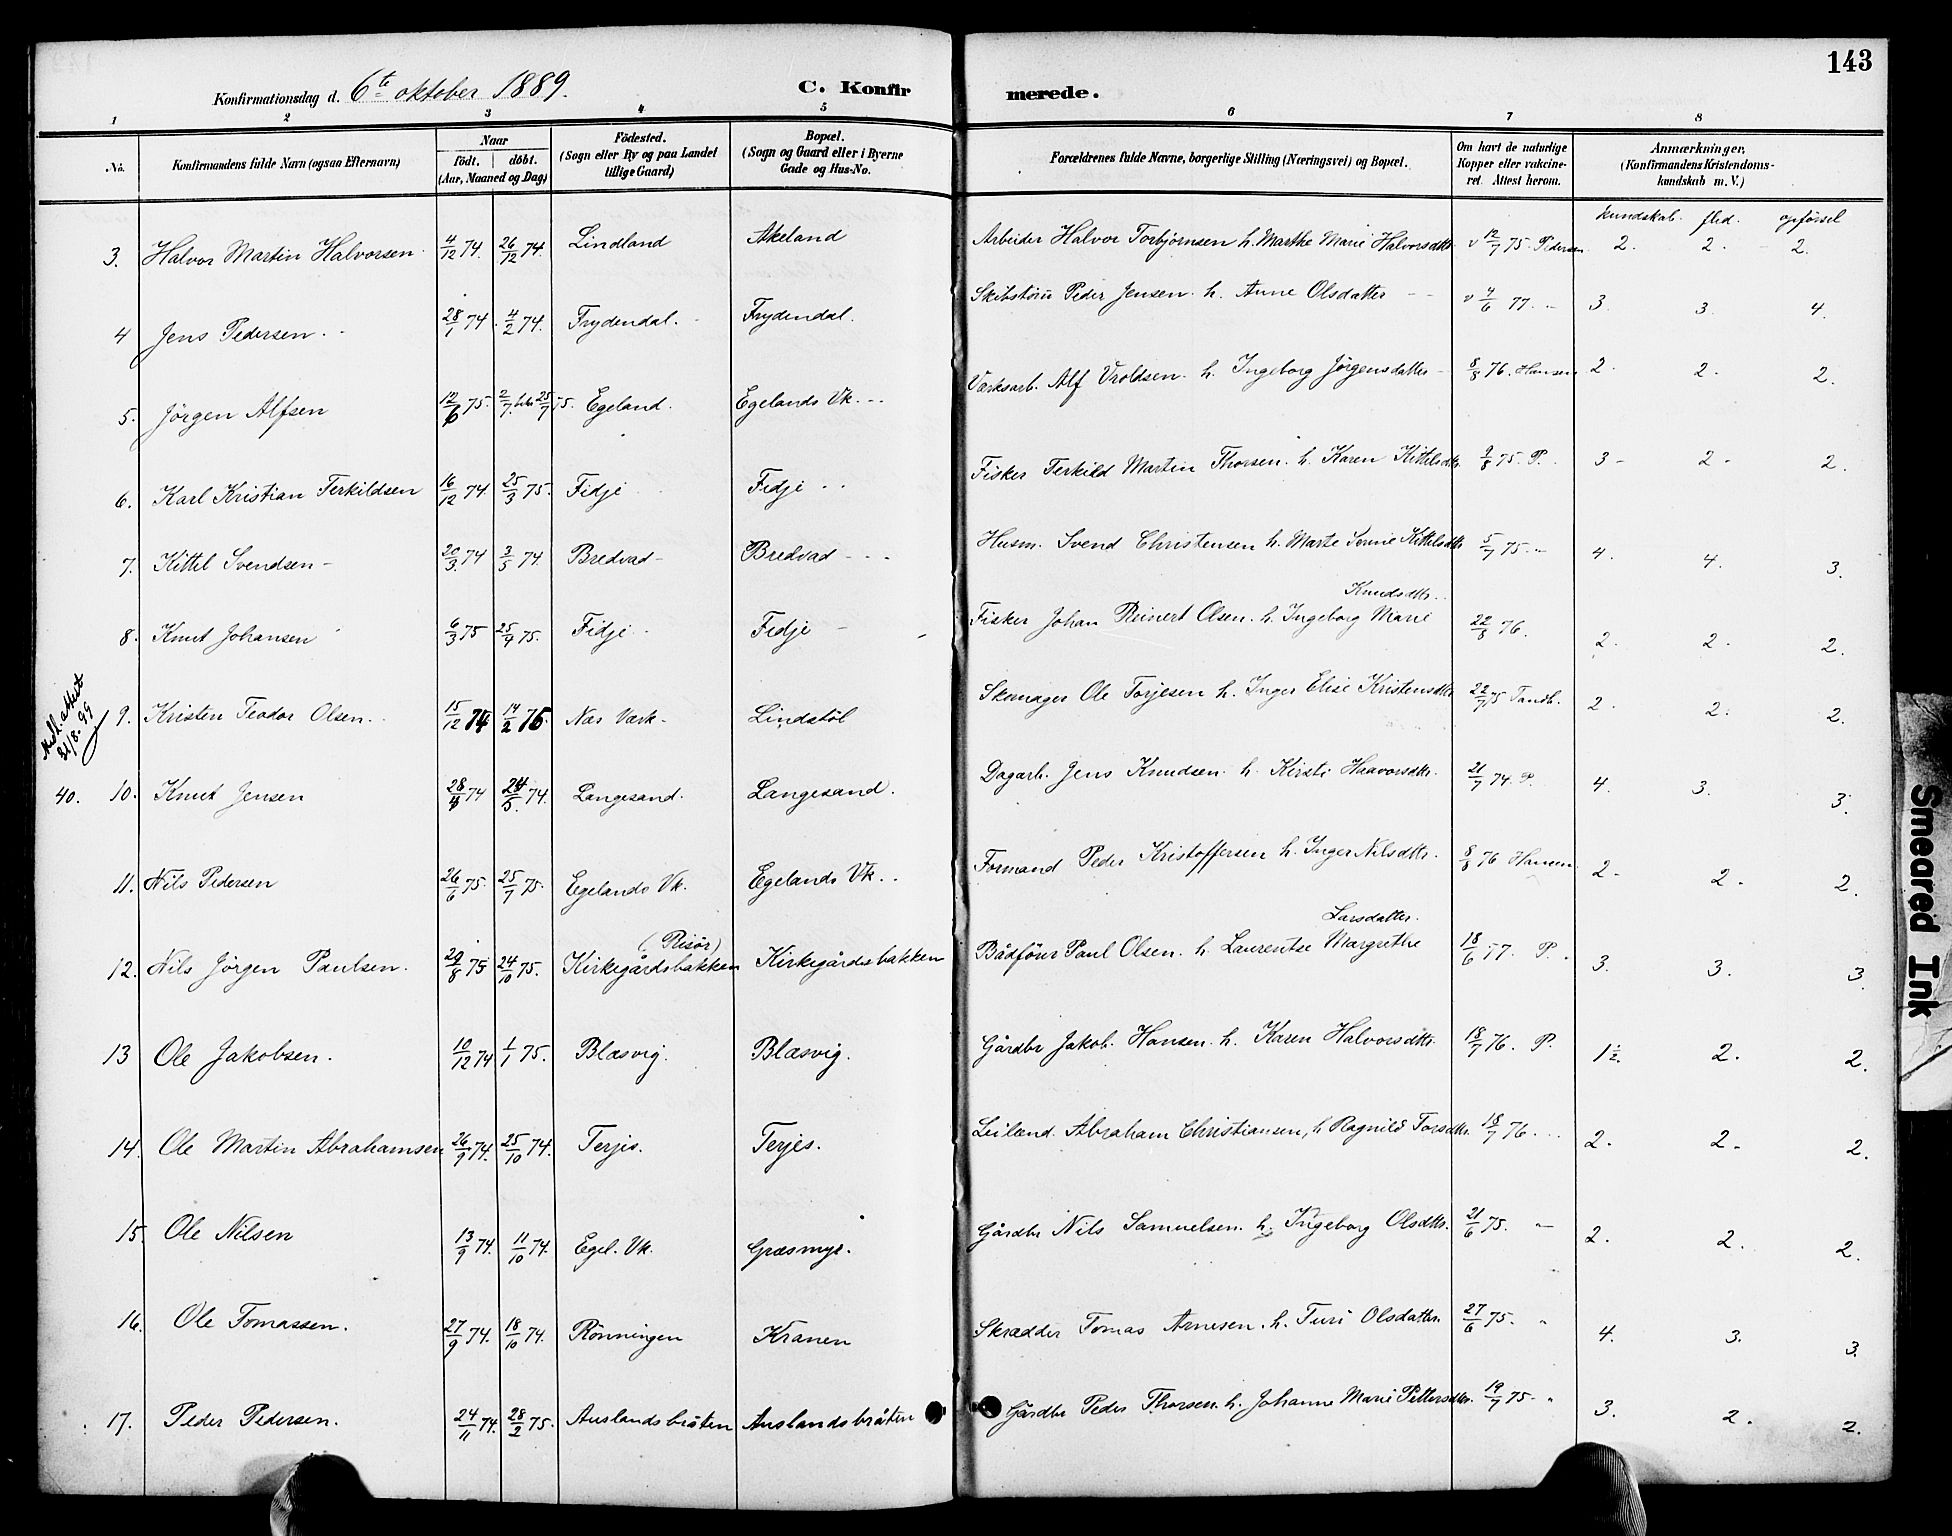 143
Konfirmationsdag d. 6te oktober 1889. C. Konfirmerede.
1 2 3 4 5 6 7 8
No. Konfirmandens fulde Navn (ogsaa Efternavn) Naar født. | døbt. (Aar, Maaned og Dag) Födested. (Sogn eller By og paa Landet tillige Gaard) Bopæl. (Sogn og Gaard eller i Byerne Gade og Hus-No. Forældrenes fulde Navne, borgerlige Stilling (Næringsvei) og Bopæl. Om havt de naturlige Kopper eller vakcineret. Attest herom. Anmærkninger. (Konfirmandens Kristendomskundskab m. V.)
kundskab. flid. opførsel
3. Halvor Martin Halvorsen 4/12 74. 26/12 74. Lindland Akeland Arbeider Halvor Torbjørnsen h. Marthe Marie Halvorsdtr. v 12/7 75 Pedersen 2. 2. 2.
4 Jens Pedersen. 28/1 74. 4/2 74. Frydendal. Frydendal. Peder Jensen. h. Anne Olsdatter v 4/6 77. 3. 3. 4.
5. Jørgen Alfsen 12/6 75. 2/7 25/7 75. Egeland. Egelands Vk. Værksarb. Alf Vroldsen. h. Ingeborg Jørgensdatter 8/8 76. Hansen 2. 2. 2.
6. Karl Kristian Terkildsen 16/12 74. 25/3 75. Fidje Fidje Fisker Terkild Martin Thorsen. h. Karen Kittelsdtr. 9/8 75. P. 3 2 2.
7. Kittel Svendsen 20/3 74 3/5 74. Bredvad Bredvad Husm. Svend Christensen h. Marte Kittelsdtr 5/7 75. " 4. 4. 3.
Knudsdtr.
8. Knut Johansen 6/3 75 25/4 75. Fidje Fidje Fisker Johan Reinert Olsen. h. Ingeborg Marie 22/8 76. 2. 2. 2.
Medd. attest 31/8. 99
9. Kristen Teodor Olsen. 15/12 74 14/2 75. Nes Værk Lindstøl Skomager Ole Torjesen h. Inger Elise Kristensdtr 22/7 75 Tandb. 2. 2. 2.
40. 10. Knut Jensen 28/4 74 24/5 74. Langesand. Langesand. Dagarb. Jens Knudsen. h. Kirsti Haavorsdtr. 21/7 74. P. 4. 3. 3.
11. Nils Pedersen 26/6 75. 25/7 75. Egelands Vk. Egelands Vk. Formand Peder Kristoffersen h. Inger Nilsdtr. 8/8 76 Hansen 2. 2. 2.
(Risør) Larsdatter.
12. Nils Jørgen Paulsen. 29/8 75 24/10 75. Kirkegårdsbakken Kirkegårdsbakken Bådfører Paul Olsen. h. Laurentse Margrethe 18/6 77. P. 3. 3. 3.
13 Ole Jakobsen. 10/12 74 1/1 75. Blæsvig. Blæsvig. Gårdbr Jakob. Hansen. h. Karen Halvorsdtr. 18/7 76. P. 1½. 2. 2.
14. Ole Martin Abrahamsen 26/9 74. 25/10 74. Terjes. Terjes. Leilænd. Abraham Christiansen, h Ragnild Torsdtr. 18/7 76. 2. 2. 2.
15. Ole Nilsen 13/9 74. 11/10 74. Egel. Vk. Græsmyr. Gårdbr Nils Samuelsen. h. Ingeborg Olsdtr. 21/6 75. " 2. 2. 2.
16. Ole Tomassen. 27/9 74. 18/10 74. Rönningen Kranen Skrædder Tomas Arnesen. h. Turi Olsdatter. 27/6 75. " 4. 3. 3.
17. Peder Pedersen. 24/11 74. 28/2 75. Auslandsbråten Auslandsbråten Gårdbr Peder Thorsen. h. Johanne Marie Pettersdtr. 19/7 75. " 3. 2. 2.
Smeared Ink